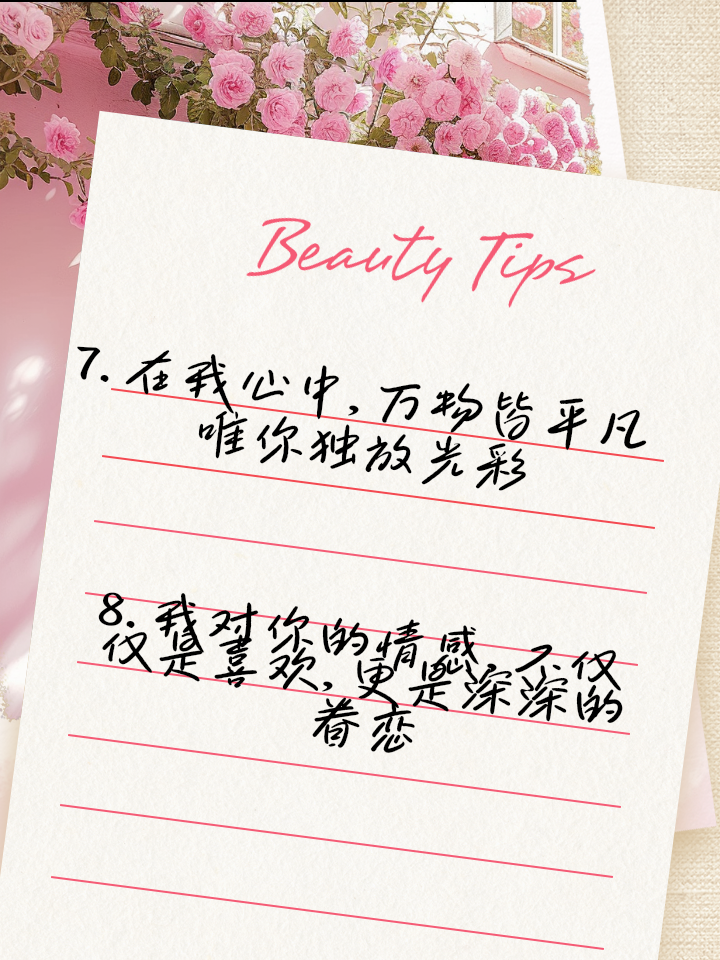 Beauty Tips
7. 在我心中,万物皆平凡
唯你独放光彩
8. 我对你的情感,不仅
仅是喜欢,更是深深的
眷恋